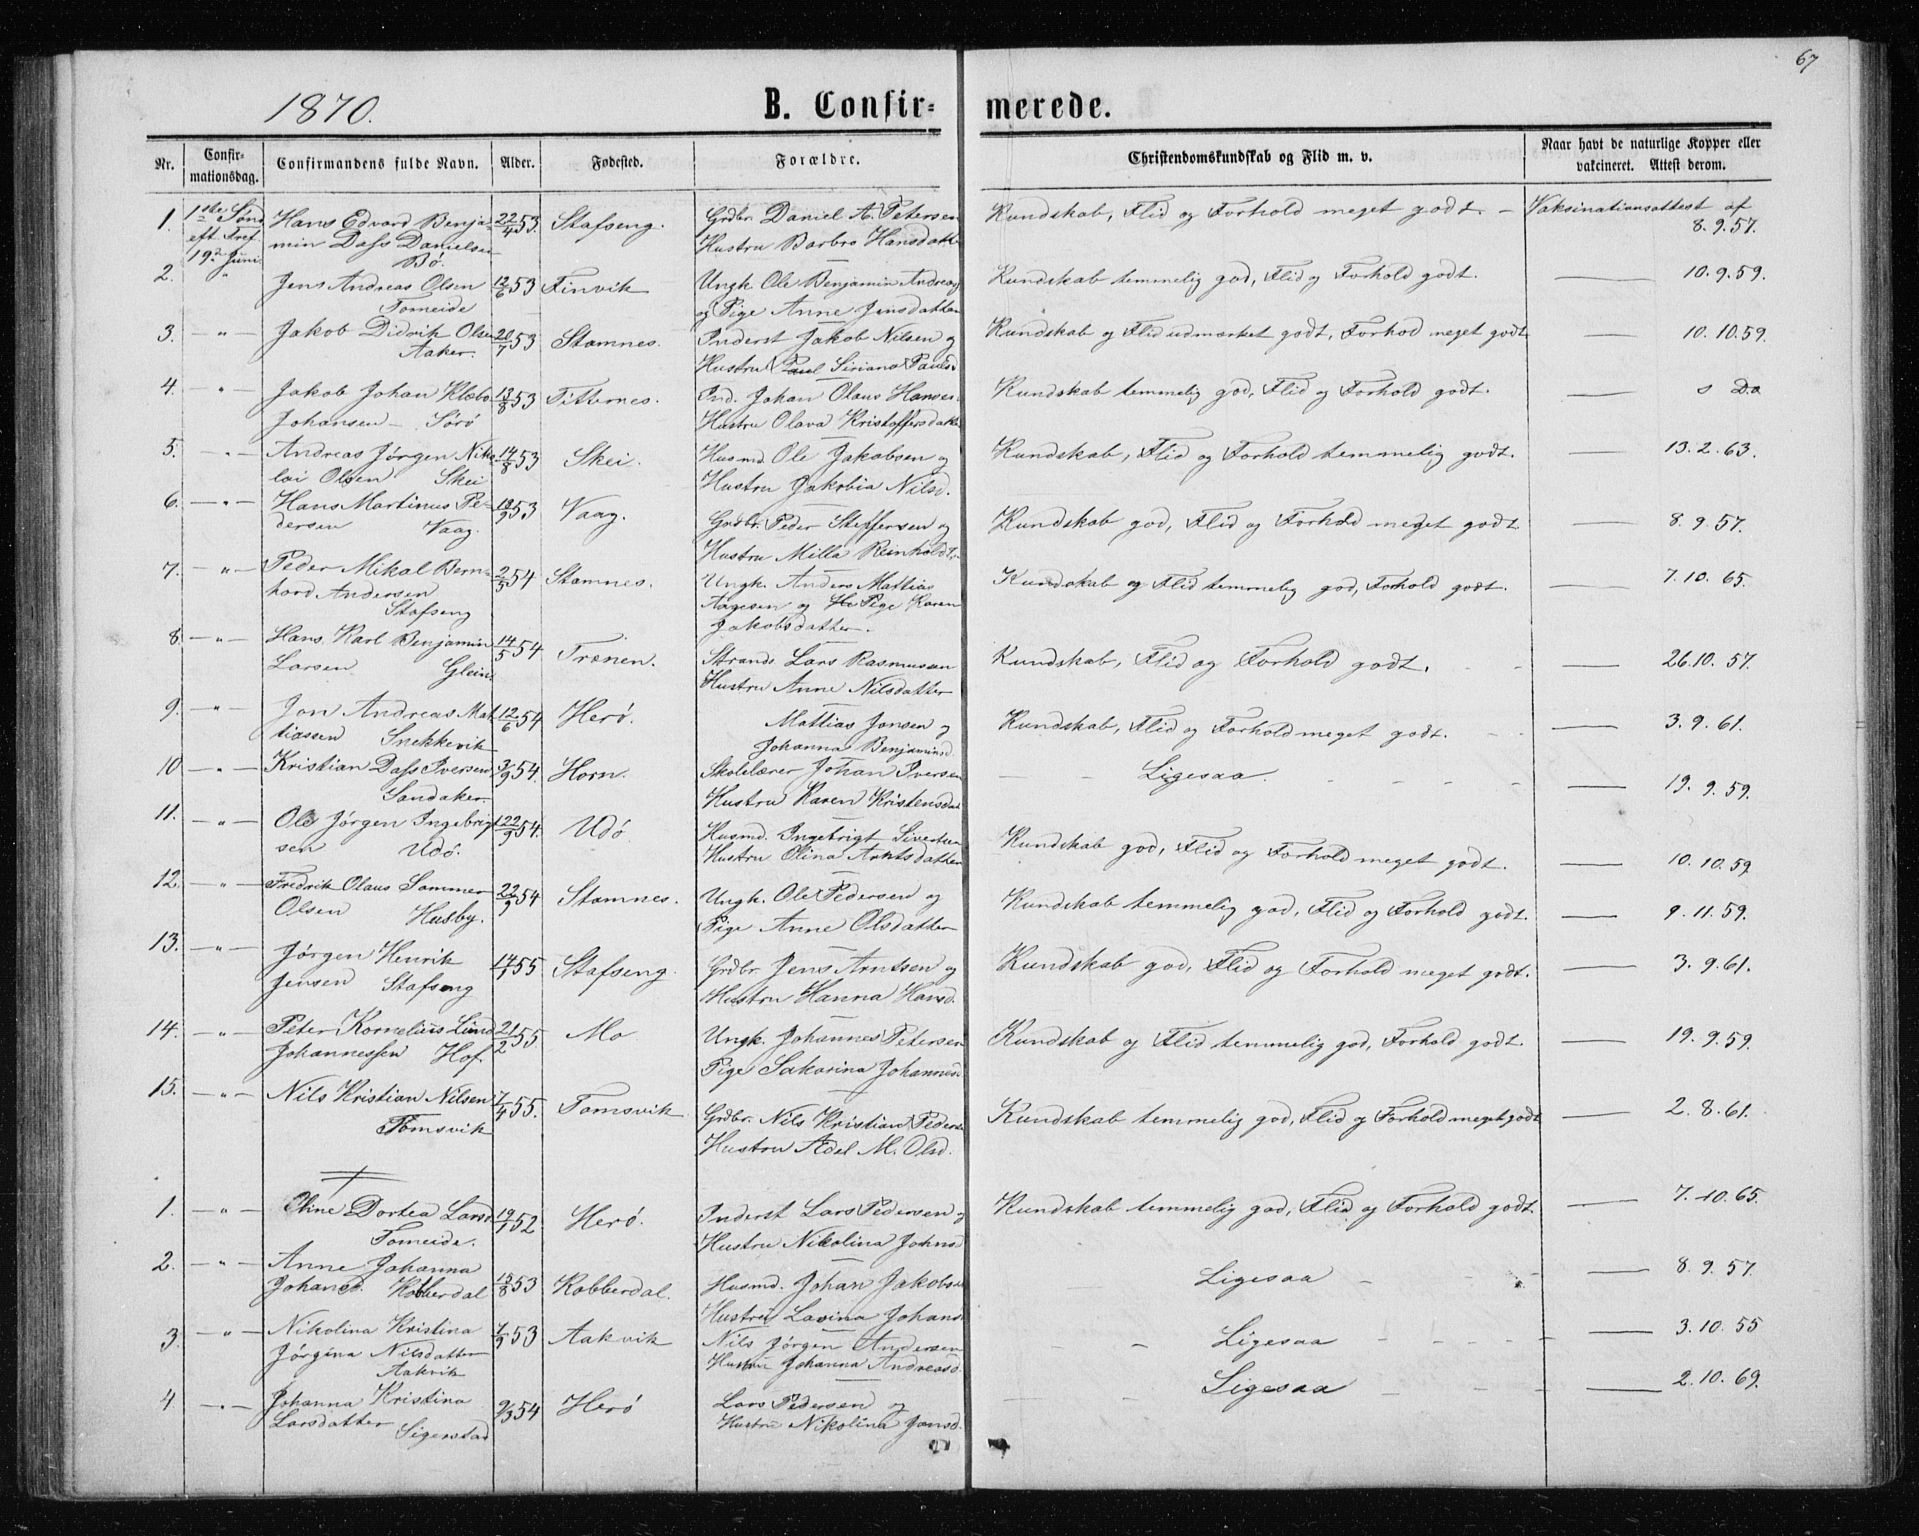 67
1870.
B. Confirmerede.
Nr. Confirmationsdag. Confirmandens fulde Navn. Alder. Fødested. Forældre. Christendomskundskab og Flid m. v. Naar havt de naturlige Kopper eller vakcineret. Attest derom.
1. 1ste Sønd. Hans Edvard Benja- 22/4 53 Stafseng. Grdbr. Daniel A. Petersen Kundskab, Flid og Forhold meget godt. – Vaksinationsattest af
eft Tref min Dass Danielsen Hustru Barbro Hansdatt 8.9.57.
19de Juni Bø.
2. " Jens Andreas Olsen 12/6 53 Finvik Ungk. Ole Benjamin Andreas Kundskab temmelig god, Flid og Forhold godt. — 10.9.59.
Tomeide og Pige Anne Jensdatter
3. — " — Jakob Didvik Olsen 20/7 53 Stamnes. Inderst Jakob Nilsen og Kundskab og Flid udmærket godt, Forhod meget godt — 10.10.59.
Aaker. Hustru Paul Siriana Paulsd
4. — " — Jakob Johan Klæbo 13/8 53 Titternes. Ind. Johan Olaus Hanses. Kundskab temmelig god, Flid og Forhold godt. — Do
Johansen – Sørø Hustru Olava Kristoffersdatter
5. — " — Andreas Jørgen Niko 14/8 53 Skei. Husmd. Ole Jakobsen og Kundskab, Flid og Forhold temmelig godt. — 13.2.63.
lai Olsen Skei Hustru Jakobia Nilsd.
6. — " — Hans Martinus Pe- 19/9 53 Vaag. Grdbr. Peder Steffensen og Kundskab god, Flid og Forhold meget godt — 8.9.57.
dersen Vaag. Hustru Milla Reinholdt.
7. — " — Peder Mikal Bern- 2/5 54 Stamnes. Ungk. Anders Mattias Kundskab og Flid temmelig god, Forhold godt. — 7.10.65.
hard Andersen Aagesen og He Pige Karen
Stafseng Jakobsdatter.
8. — " — Hans Karl Benjamin 14/5 54 Trænen. Strands. Lars Rasmussen Kundskab, Flid og Forhold godt. — 26.10.57.
Larsen Glein Hustru Anne Nilsdatter
9. — " — Jon Andreas Mat- 12/6 54 Herø. Mattias Jonsen og Kundskab, Flid og Forhold meget godt. — 3.9.61.
tiassen Snekkevik Johanna Benjaminsd.
10 — " — Kristian Dass Iversen 3/9 54. Horn. Skolelærer Johan Iversen Ligesaa. — 19.9.59.
Sandaker. Hustru Karen Kristensdat
11. — " — Ole Jørgen Ingebrigt 22/9 54. Udø Husmd. Ingebrigt Sivertsen Kundskab god, Flid og Forhold meget godt. — 10.10.59
sen Udø. Hustru Olina Arntsdatter
12. — " — Fredrik Olaus Sommer 22/9 54 Stamnes. Ungk. Ole Pedersen og Kundskab temmelig god, Flid og Forhold godt. — 9.11.59.
Olsen Husby. Pige Anne Olsdatter
13. — " — Jørgen Henrik 14/1 55 Stafseng. Grdbr. Jens Arntsen og Kundskab god, Flid og Forhold meget godt. — 3.9.61.
Jensen Stafseng Hustru Hanna Hansd.
14. — " — Peter Kornelius Lund 21/2 55. Mo Ungk. Johannes Petersen Kundskab og Flid temmelig god, Forhold godt. — 19.9.59.
Johannessen Hof. Pige Sakarina Johannesd
15. — " — Nils Kristian Nilsen 7/4 55. Tomsvik Grdbr. Nils Kristian Peders Kundskab temmelig god, Flid og Forhold meget godt — 2.8.61.
Tomsvik Hustru Adel M. Olsd.
1. — " — Oline Dortea Larsd 19/ 52. Herø. Inderst Lars Pedersen og Kundskab temmelig god, Flid og Forhold godt. — 7.10.65.
Tomeide. Hustru Nikolina Johnsd
2. — " — Anne Johanna 18/8 53 Kobberdal. Husmd. Johan Jakobs Ligesaa — 8.9.57.
Johansd. Kobberdal Hustru Lavina Johans
3. — " — Nikolina Kristina 1/9 53 Aakvik Nils Jørgen Andersen Ligesaa — 3.10.55
Jørgina Nilsdatter Hustru Johanna Andreasd.
Aakvik
4 — " — Johanna Kristina 9/3 54 Herø Lars Pedersen og Ligesaa — 2.10.69.
Larsdatter Sigerstad Hustru Nikolina Jonsd.